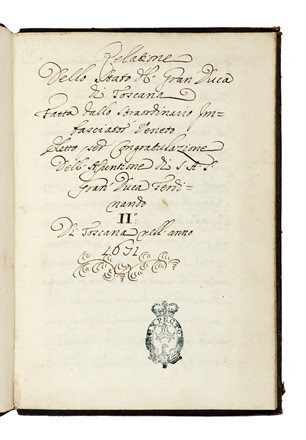 Relatione
Dello Stato del Gran Duca
di Toscana
Fatta dallo straordinario Im=
basciator Veneto
eletto per Congratulatione
Dell' Assuntione di S. A. S.
Gran Duca Ferdi=
nando
II°
Di Toscana nell' anno
1631